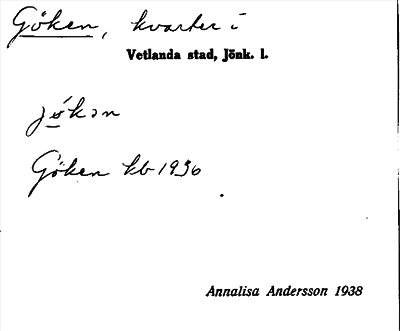 Göken, kvarter i
Vetlanda stad, Jönk. l.
jǿkən
Göken kb 1936
Annalisa Andersson 1938